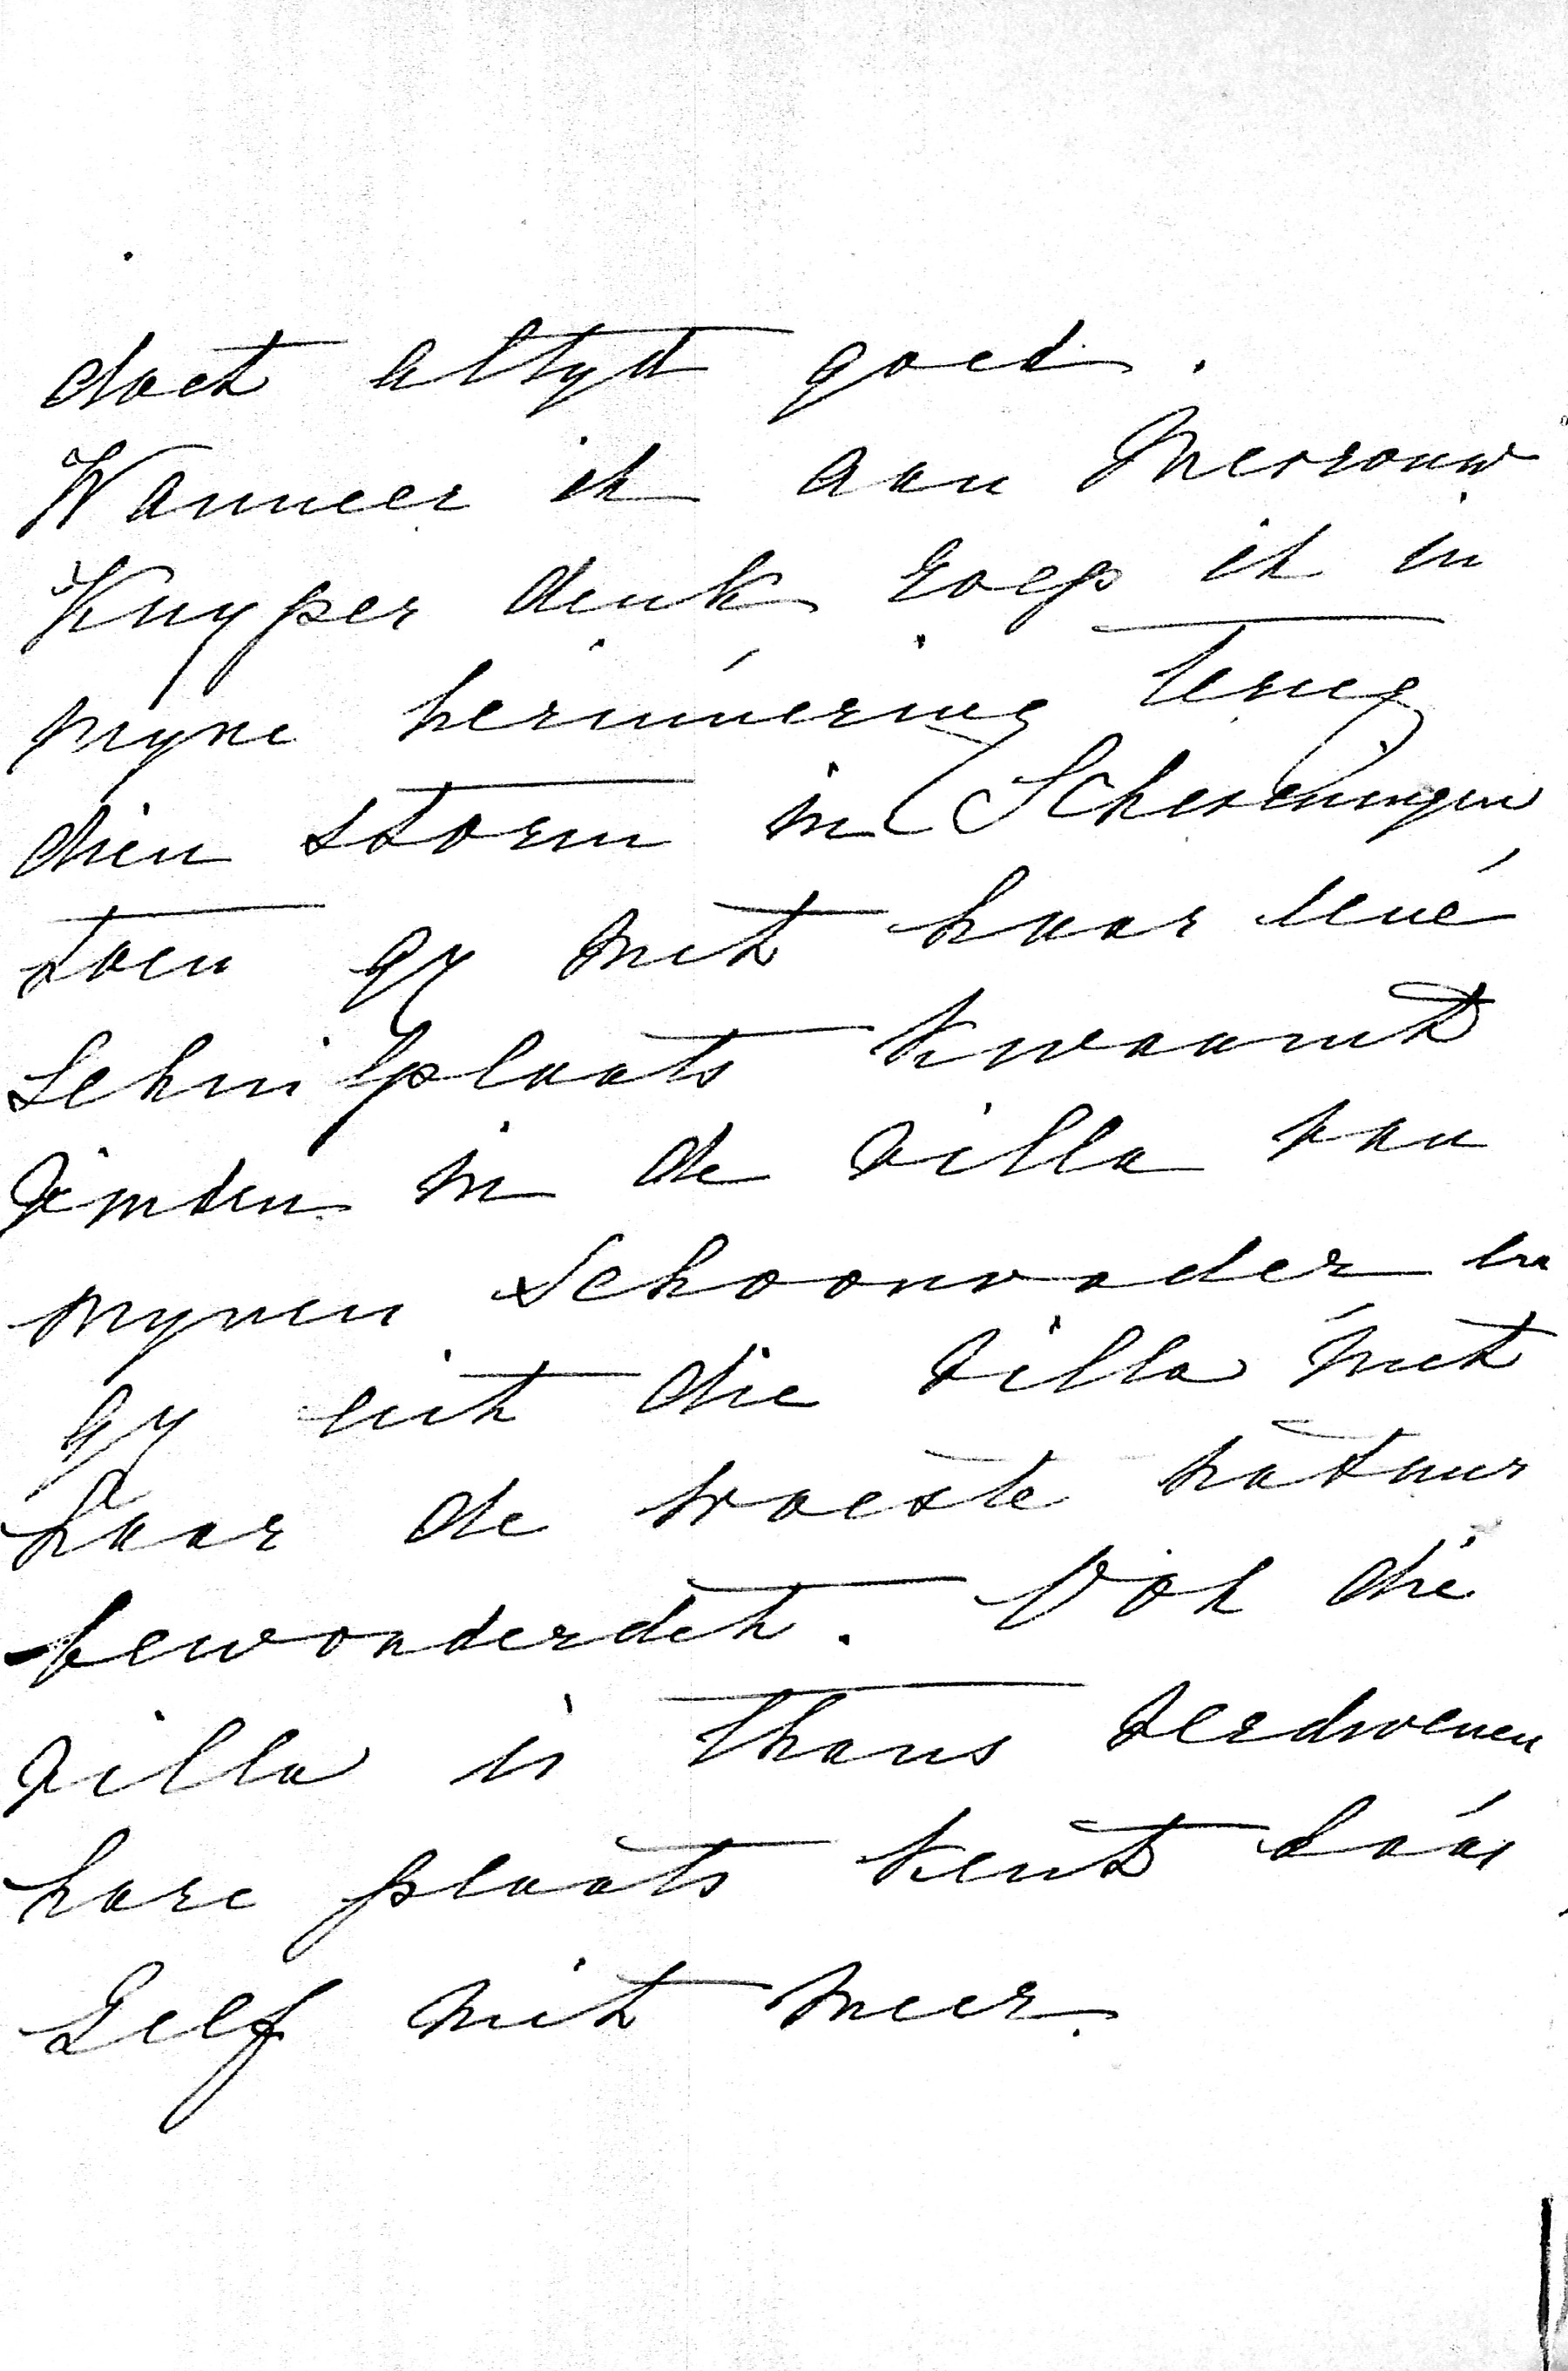 doet altyd goed.
Wanneer ik aan Mevrouw
Kuyper denk roep ik in
myne herinnering terug
dien storm in Scheveningen
toen gy met haar eene
schuilplaats kwaamt
vinden in de villa van
mynen schoonvader en
gy uit die villa met
haar de woeste natuur
bewonderdet. Ook die
villa is thans verdwenen
hare plaats kent háár
zelf niet meer.